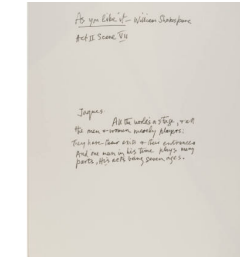 As you like it - William Shakespeare
Act II Scene VII
Jaques:
All the world's a stage, + all
the men + women merely players:
They have their exits + their entrances
And one man in his time plays many
parts, His acts being seven ages.